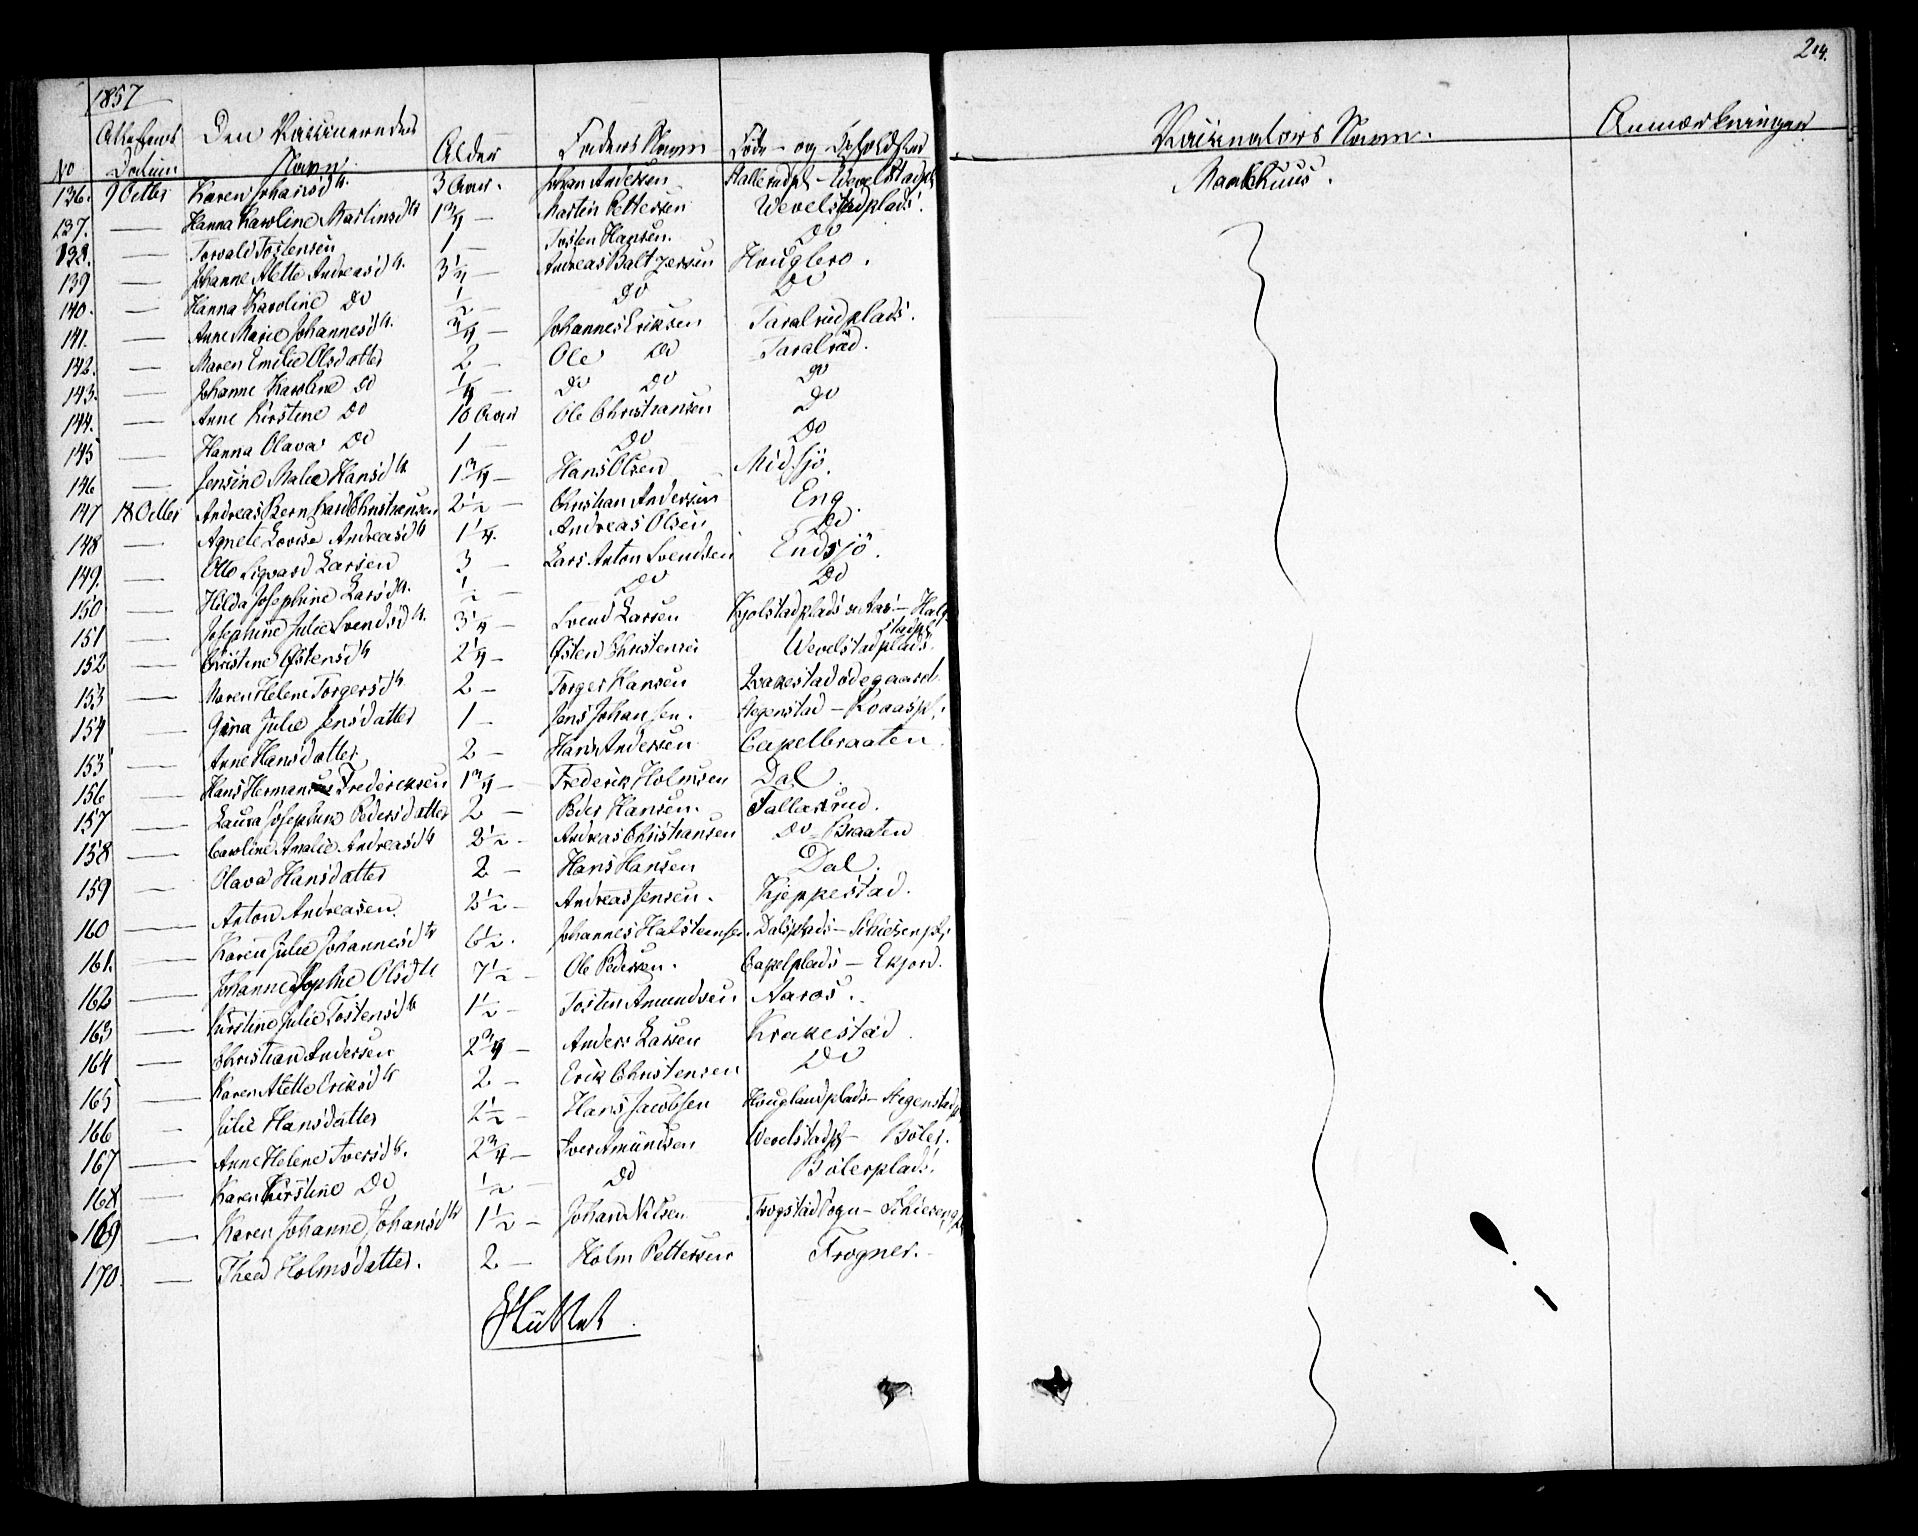 1857
214.
No Attestens Datum Den Vaccineredes Navn. Alder Faders Navn Føde- og Opholdsted Vaccinators Navn. Anmærkninger
136. 9 Octbr Karen Johansdtr. 3 Aar. Johan Andersen Wevelstadpl Maakhuus.
137. — Hanna Karoline Martinsdtr 1 3/4 — Martin Pettersen Wevelstadplads.
138. — Torvald Tostensen 1 — Tosten Hansen. Do
139 — Johanne Alette Andreasdtr. 3 1/4 — Andreas Baltzersen Houglero.
140. — Hanna Karoline Do 1/2 — Do Do
141. — Anne Marie Johannesdtr. 3/4 — Johannes Eriksen Taralrudplads.
142. — Maren Emilie Olsdatter 2 — Ole Do Taralrud.
143. — Johanne Karoline Do 1/4 — Do Do Do
144. — Anne Kirstine Do 10 Aar Ole Christiansen Do
145 — Hanna Olava Do 1 — Do Do
146 — Jensine Malie Hansdtr 1 3/4 — Hans Olsen Midsjö.
147 18 Octbr Andreas Bernhard Christiansen 2 1/2 — Christian Andersen Eng.
148 — Agnete Lovise Andreasdtr 1 1/4. Andreas Olsen Do
149. — Otto Sigvard Larsen 3 — Lars Anton Svendsen Endsjö.
150 — Hilda Josephine Larsdtr. 1/2 — Do Do
151 — Josephine Julie Svendsdtr. 3 1/4 — Svend Larsen Kjolstadplads Aas —
152 — Christine Østensdtr 2 1/4 — Østen Christensen Wevelstadplads.
153 — Maren Helene Torgersdtr 2 — Torger Hansen Krakestadödegaard
154 — Gina Julie Jensdatter 1 — Jens Johansen. Hegenstad —
153 — Anne Hansdatter 2 — Hans Andersen Capelbraaten
156 — Hans Herman Fredericksen 1 3/4 — Frederik Holmsen Dal.
157 — Laura Josephine Pedersdatter 2 — Peder Hansen. Tallaxrud.
158 — Caroline Amalie Andreasdtr 2 1/2 — Andreas Christiansen Do - Braaten
159 — Olava Hansdatter 2 — Hans Hansen Dal.
160 — Anton Andreasen 2 1/2 — Andreas Jensen. Kjeppestad.
161. — Karen Julie Johannesdtr 6 1/2. Johannes Halstensen Dalsplads —
162 — Johanne Sophie Olsdtr 7 1/2 — Ole Pedersen. Capelplads — Ekjord.
163 — Kirstine Julie Tostensdtr 1 1/2 — Tosten Amundsen Aaros.
164 — Christian Andersen 2 3/4 — Anders Larsen Krakestad
165 — Karen Alette Eriksdtr 2 — Erik Christensen Do
166 — Julie Hansdatter 2 1/2 — Hans Jacobsen Houglandplads — Hegenstadp
167 — Anne Helene Iversdtr. 2 3/4 — Iver Amundsen Wevelstadpl — Böler.
168 — Karen Kirstine Do 1/2 — Do Bölerplads.
169 — Karen Johanne Johansdtr 1 1/2 — Johan Nilsen Frogstad Sogn —
170. — Thea Holmsdatter. 2 — Holm Pettersen Frogner. —
Sluttet.